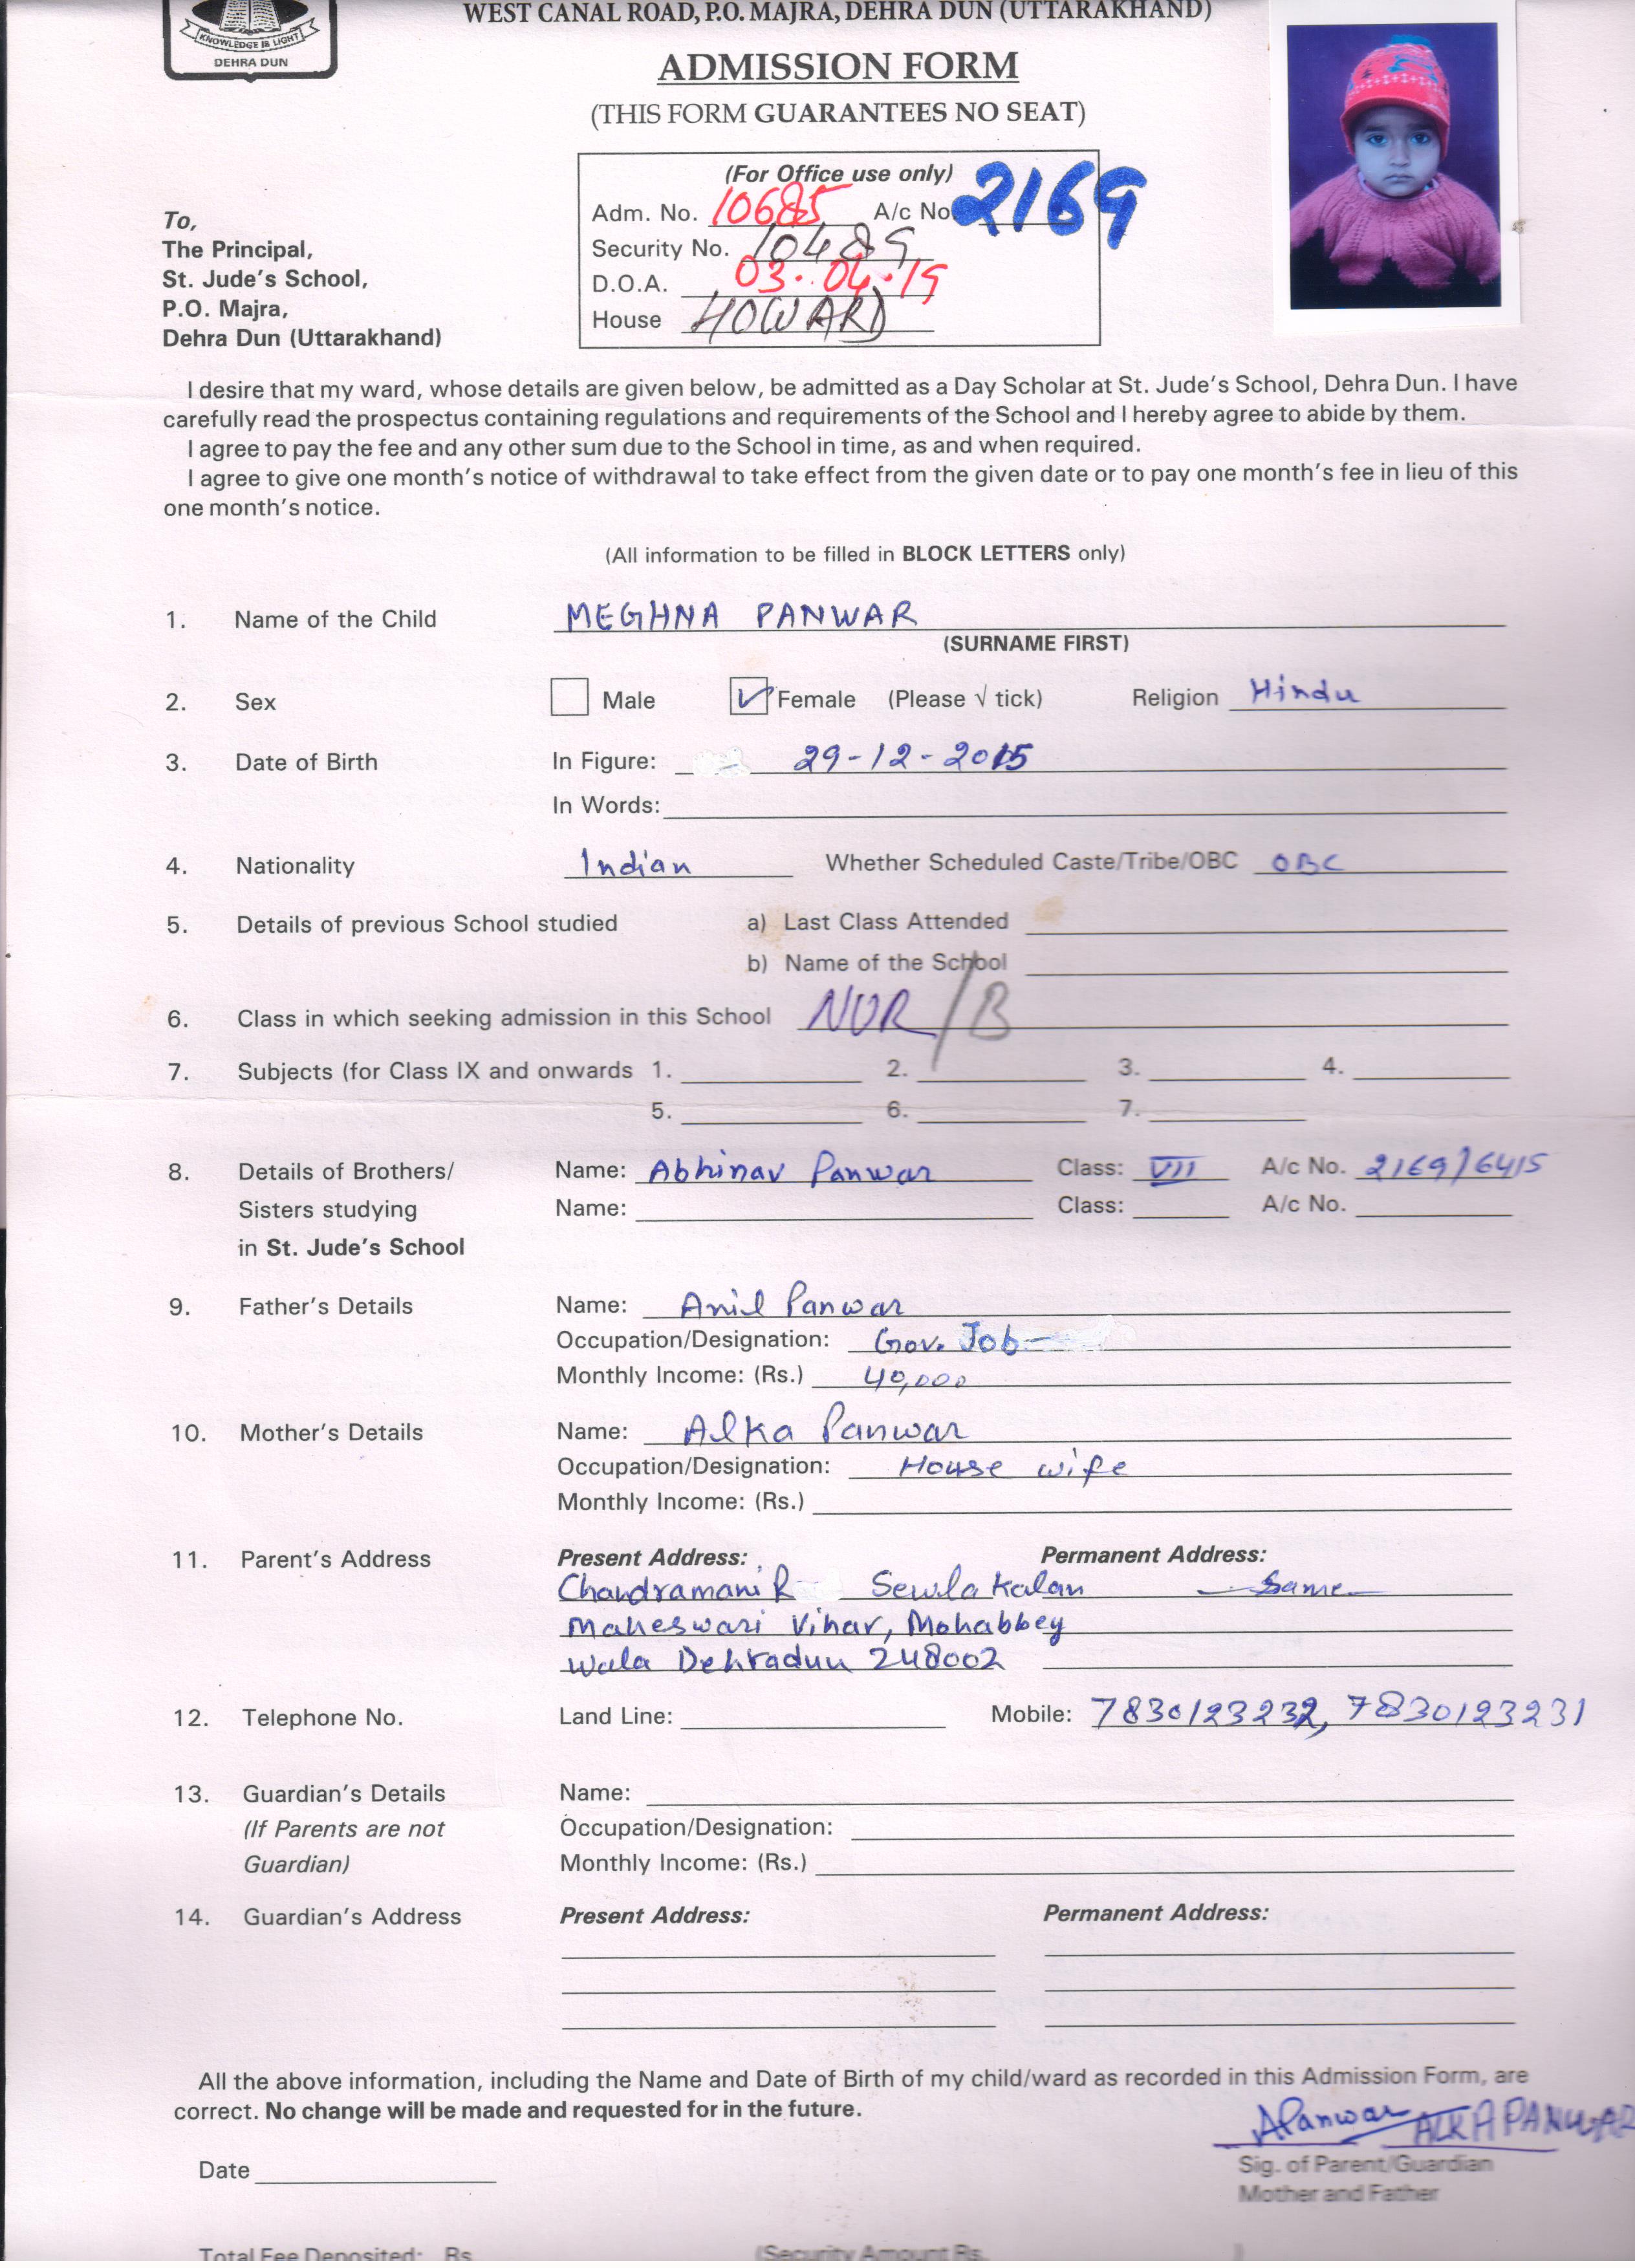 WEST CANAL ROAD, P.O. MAJRA, DEHRA DUN (UTTARAKHAND)
KNOWLEDGE IS LIGHT
DEHRA DUN
ADMISSION FORM
(THIS FORM GUARANTEES NO SEAT)
(For Office use only)
Adm. No. 10685 A/c No. 2169
Security No. 10489
D.O.A. 03.04.19
House HOWARD
To,
The Principal,
St. Jude's School,
P.O. Majra,
Dehra Dun (Uttarakhand)
I desire that my ward, whose details are given below, be admitted as a Day Scholar at St. Jude's School, Dehra Dun. I have
carefully read the prospectus containing regulations and requirements of the School and I hereby agree to abide by them.
I agree to pay the fee and any other sum due to the School in time, as and when required.
I agree to give one month's notice of withdrawal to take effect from the given date or to pay one month's fee in lieu of this
one month's notice.
(All information to be filled in BLOCK LETTERS only)
1. Name of the Child MEGHNA PANWAR
(SURNAME FIRST)
2. Sex Male Female (Please √ tick) Religion Hindu
3. Date of Birth In Figure: 29-12-2015
In Words:
4. Nationality Indian Whether Scheduled Caste/Tribe/OBC OBC
5. Details of previous School studied a) Last Class Attended
b) Name of the School
6. Class in which seeking admission in this School NUR/B
7. Subjects (for Class IX and onwards 1. 2. 3. 4.
5. 6. 7.
8. Details of Brothers/ Name: Abhinav Panwar Class: VII A/c No. 2169/6415
Sisters studying Name: Class: A/c No.
in St. Jude's School
9. Father's Details Name: Anil Panwar
Occupation/Designation: Gov. Job
Monthly Income: (Rs.) 40,000
10. Mother's Details Name: Alka Panwar
Occupation/Designation: House wife
Monthly Income: (Rs.)
11. Parent's Address Present Address: Permanent Address:
Chandramani R Sewla Kalan Same
Maheswari Vihar, Mohabbey
Wala Dehradun 248002
12. Telephone No. Land Line: Mobile: 7830123232, 7830123231
13. Guardian's Details Name:
(If Parents are not Occupation/Designation:
Guardian) Monthly Income: (Rs.)
14. Guardian's Address Present Address: Permanent Address:
All the above information, including the Name and Date of Birth of my child/ward as recorded in this Admission Form, are
correct. No change will be made and requested for in the future.
APanwar ALKA PANWAR
Date Sig. of Parent/Guardian
Mother and Father
Total Fee Deposited: Rs. (Security Amount Rs. )